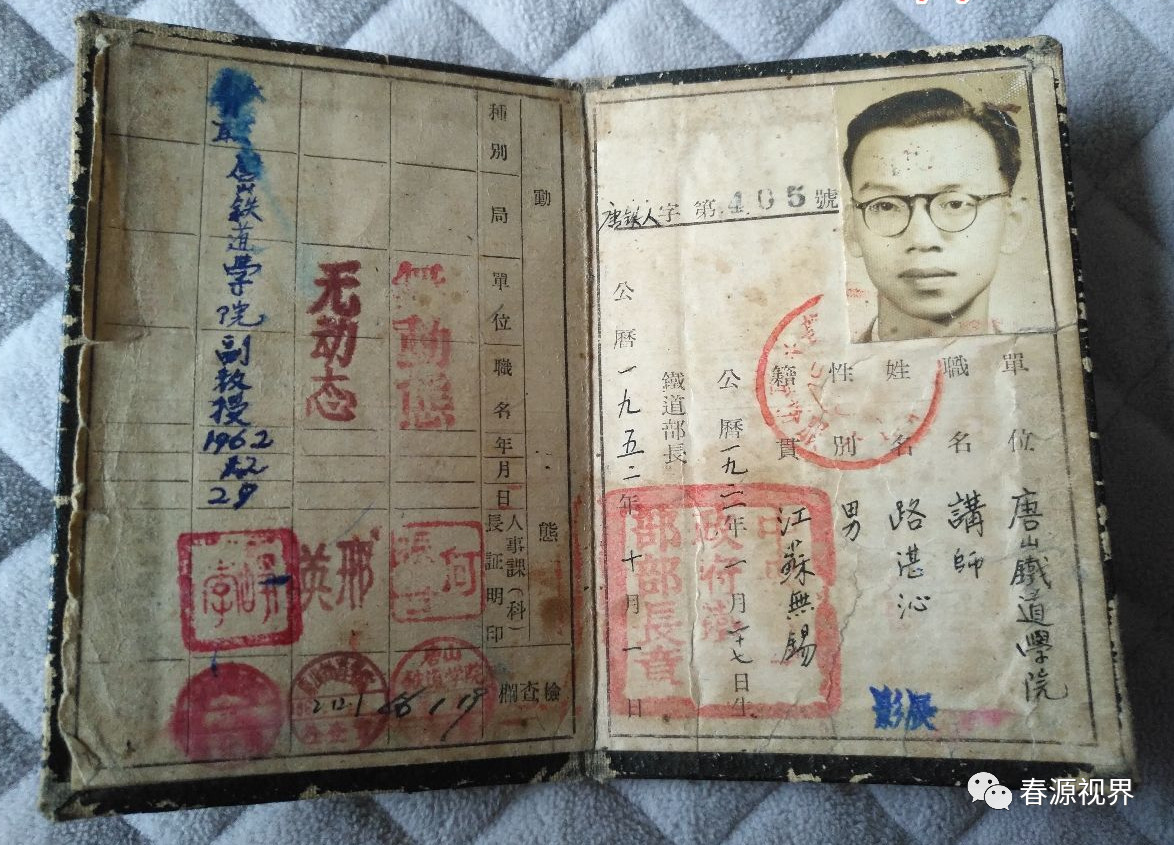 唐鉄人字第405號
單位 唐山鐵道學院
職名 講師
姓名 路湛沁
性別 男
籍貫 江蘇無錫
公曆一九二一年一月二十七日生
鐵道部長
公曆一九五二年十月一日
部部長章
影展
動態
種別
局
單位
職名
年月日
人事課(科)
長証明印
檢查欄
無動態
唐山
鐵道學院
56 1 19
无动态
邢英
2.12.1
唐山鉄道學院副教授
1962
12
29
春源视界